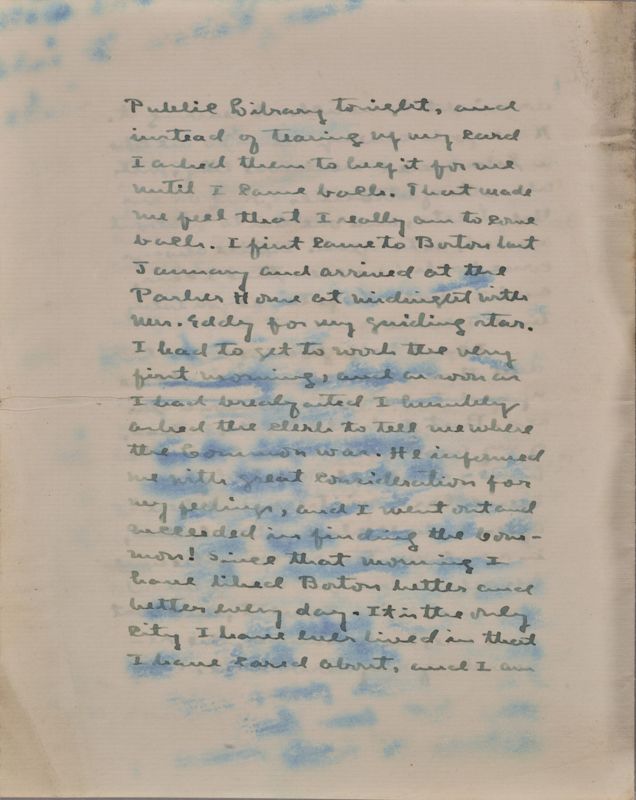 Public Library tonight, and
instead of tearing up my card
I asked them to keep it for me
until I came back. That made
me feel that I really am to come
back. I first came to Boston last
January and arrived at the
Parker House at midnight with
Mrs. Eddy for my guiding star.
I had to get to work the very
first morning, and as soon as
I had breakfasted I humbly
asked the clerk to tell me where
the Common was. He informed
me with great consideration for
my feelings, and I went out and
succeeded in finding the Com-
mon! Since that morning I
have liked Boston better and
better every day. It is the only
city I have ever lived in that
I have cared about, and I am